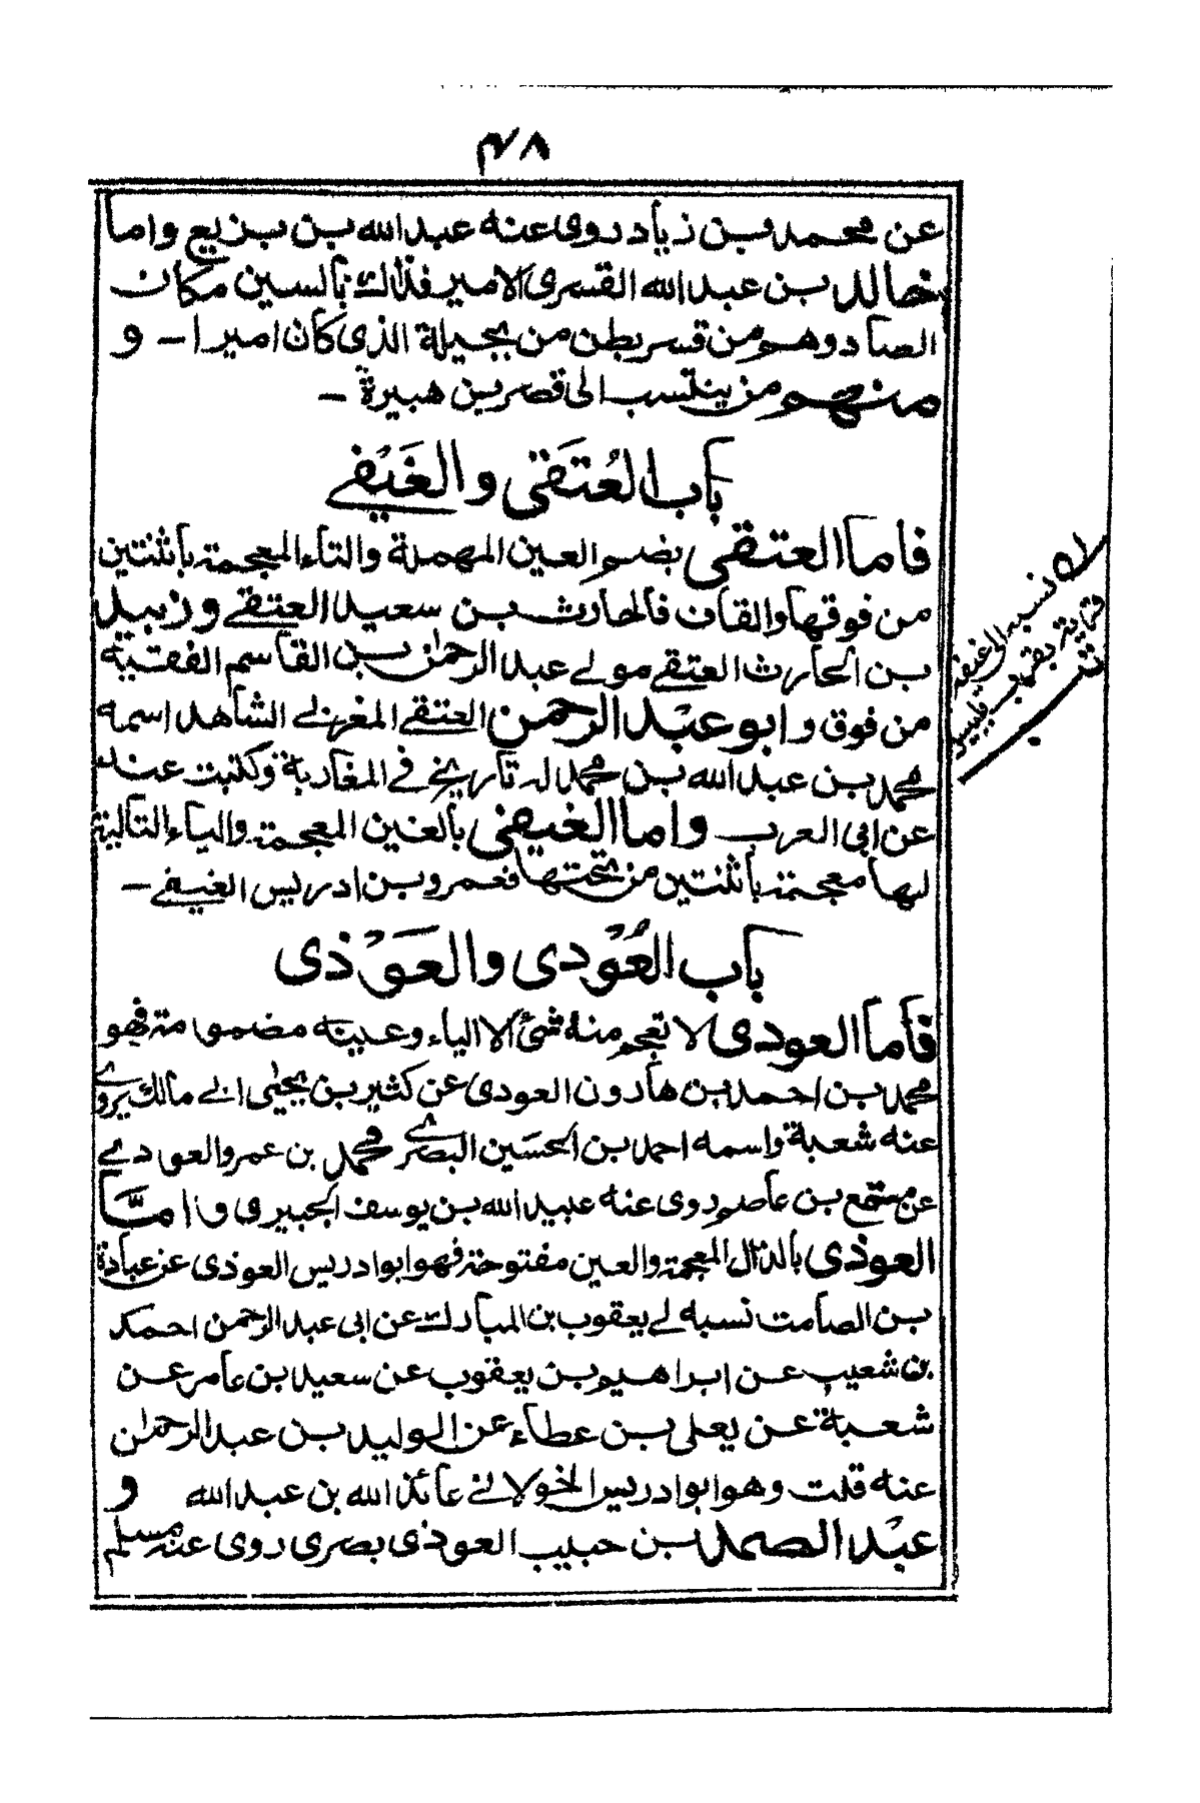 ٤٨
عن محمد وبن زياد روى عنه عبد الله بن بزيع واما
خالد بن عبد الله القسري الامير فذلك بالسين مكان
الصاد وهم من قسر بطن من بجيلة الذي كان اميرا ـ و
منهم من ينتسب الى قصر بن هبيرة ـ
باب العُتَقي والغَيْفي
فاما العتقي بضم العين المهملة والتاء المعجمة باثنتين
من فوقها والقاف فالحارث بن سعيد العتقي وزبيد
بن الحارث العتقي مولى عبد الرحمن بن القاسم الفقيه
من فوق وابو عبد الرحمن العتقي المغربي الشاهد اسمه
محمد بن عبد الله بن محمد له تاريخ في المغاربة وكتبت عنه
عن ابي العرب واما الغيفي بالغين المعجمة والياء التالية
لها معجمة باثنتين من تحتها فعمرو بن ادريس الغيفي ـ
باب العُوْدي والعَوْذي
فاما العودي لا تعجم منه شئ الا الياء وعينه مضمومة فهو
محمد بن احمد بن هارون العودي عن كثير بن يحيى ابي مالك يروي
عنه شعبة واسمه احمد بن الحسين البصري محمد بن عمر والعودي
عن مجمع بن عاصم روى عنه عبيد الله بن يوسف الجبيري واما
العوذي بالذال المعجمة والعين مفتوحة فهو ابو ادريس العوذي عن عبادة
بن الصامت نسبه لي يعقوب بن المبارك عن ابي عبد الرحمن احمد
بن شعيب عن ابراهيم بن يعقوب عن سعيد بن عامر عن
شعبة عن يعلى بن عطاء عن الوليد بن عبد الرحمن
عنه قلت وهو ابو ادريس الخولاني عائذ الله بن عبد الله و
عبد الصمد بن حبيب العوذي بصري روى عنه مسلم
له نسبه الى غيفه
قرية بقرب بلبيس